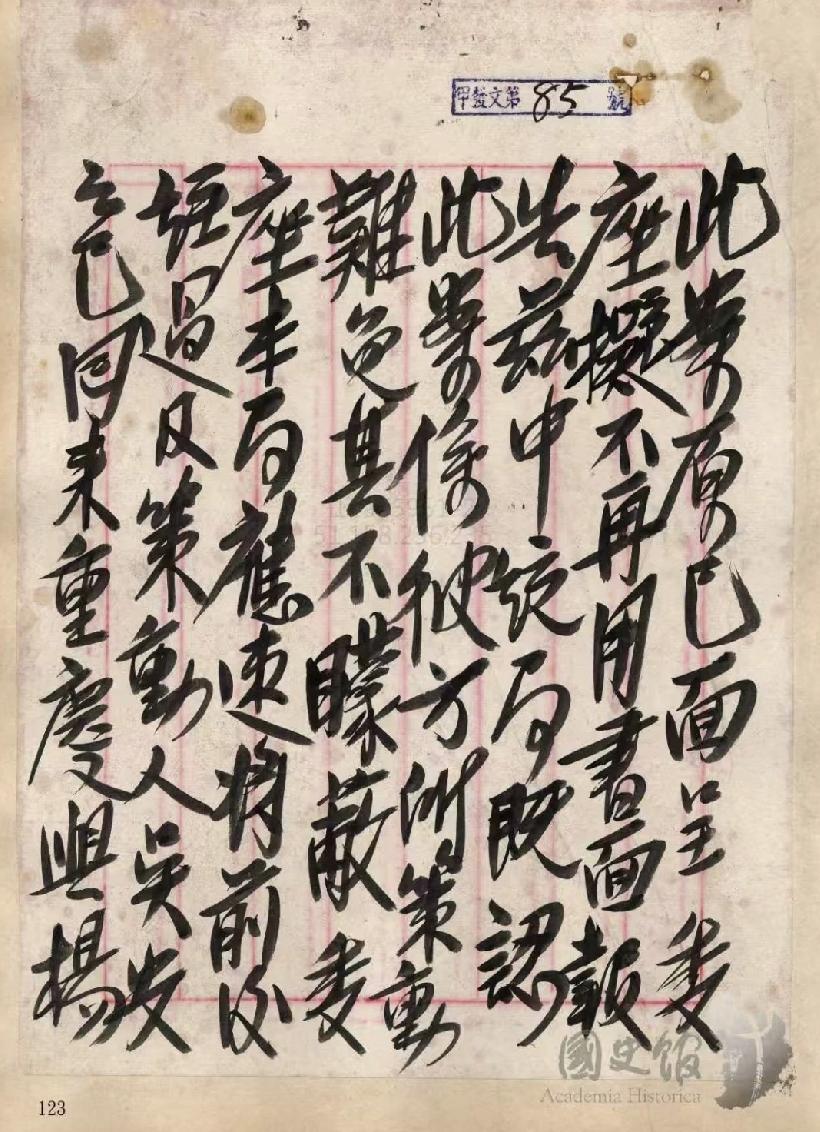 甲發文第85號
此案原已面呈 委
座擬不再用書面報
告茲中統局既認
此案係彼方所策動
難免其不矇蔽 委
座本局應速將前後
經過及策動人吳安
之已回來重慶與楊
國史館
Academia Historica
123